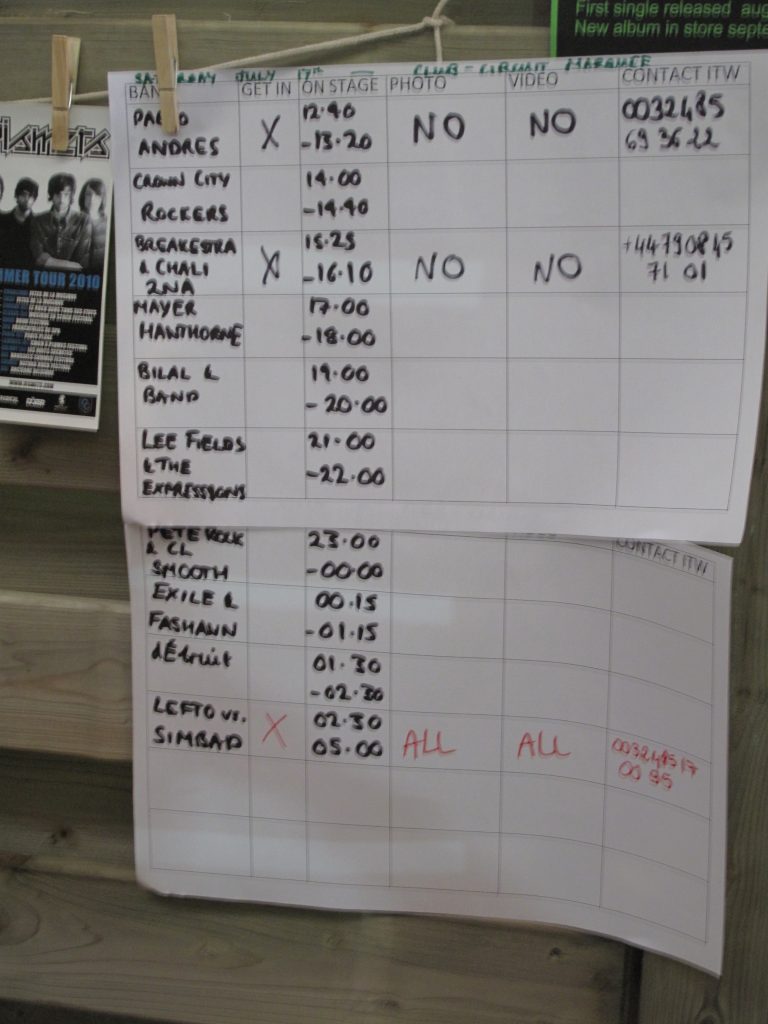 First single released aug
New album in store septe
SATURDAY JULY 17th — CLUB-CIRCUIT MARQUEE
BAN GET IN ON STAGE PHOTO VIDEO CONTACT ITW
PABLO ANDRES X 12.40 -13.20 NO NO 0032485 69 36 22
CROWN CITY ROCKERS 14.00 -14.40
BREAKESTRA & CHALI 2NA X 15.25 -16.10 NO NO +44790845 71 01
MAYER HAWTHORNE 17.00 -18.00
BILAL & BAND 19.00 -20.00
LEE FIELDS & THE EXPRESSIONS 21.00 -22.00
CONTACT ITW
PETE ROCK & CL SMOOTH 23.00 -00.00
EXILE & FASHAWN 00.15 -01.15
dÉbruit 01.30 -02.30
LEFTO vs. SIMBAD X 02.30 05.00 ALL ALL 003248517 00 95
MER TOUR 2010